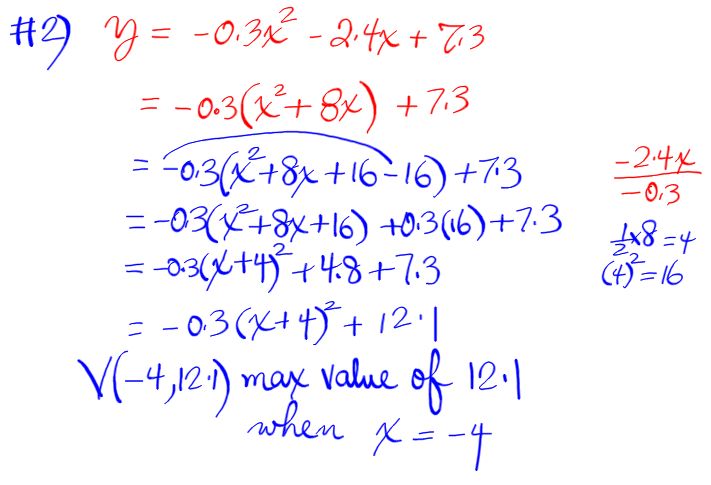 #2) y = -0.3x² - 2.4x + 7.3
= -0.3(x² + 8x) + 7.3
= -0.3(x² + 8x + 16 - 16) + 7.3
= -0.3(x² + 8x + 16) + 0.3(16) + 7.3
= -0.3(x + 4)² + 4.8 + 7.3
= -0.3(x + 4)² + 12.1
V(-4, 12.1) max value of 12.1
when x = -4
-2.4x
-0.3
½ x 8 = 4
(4)² = 16